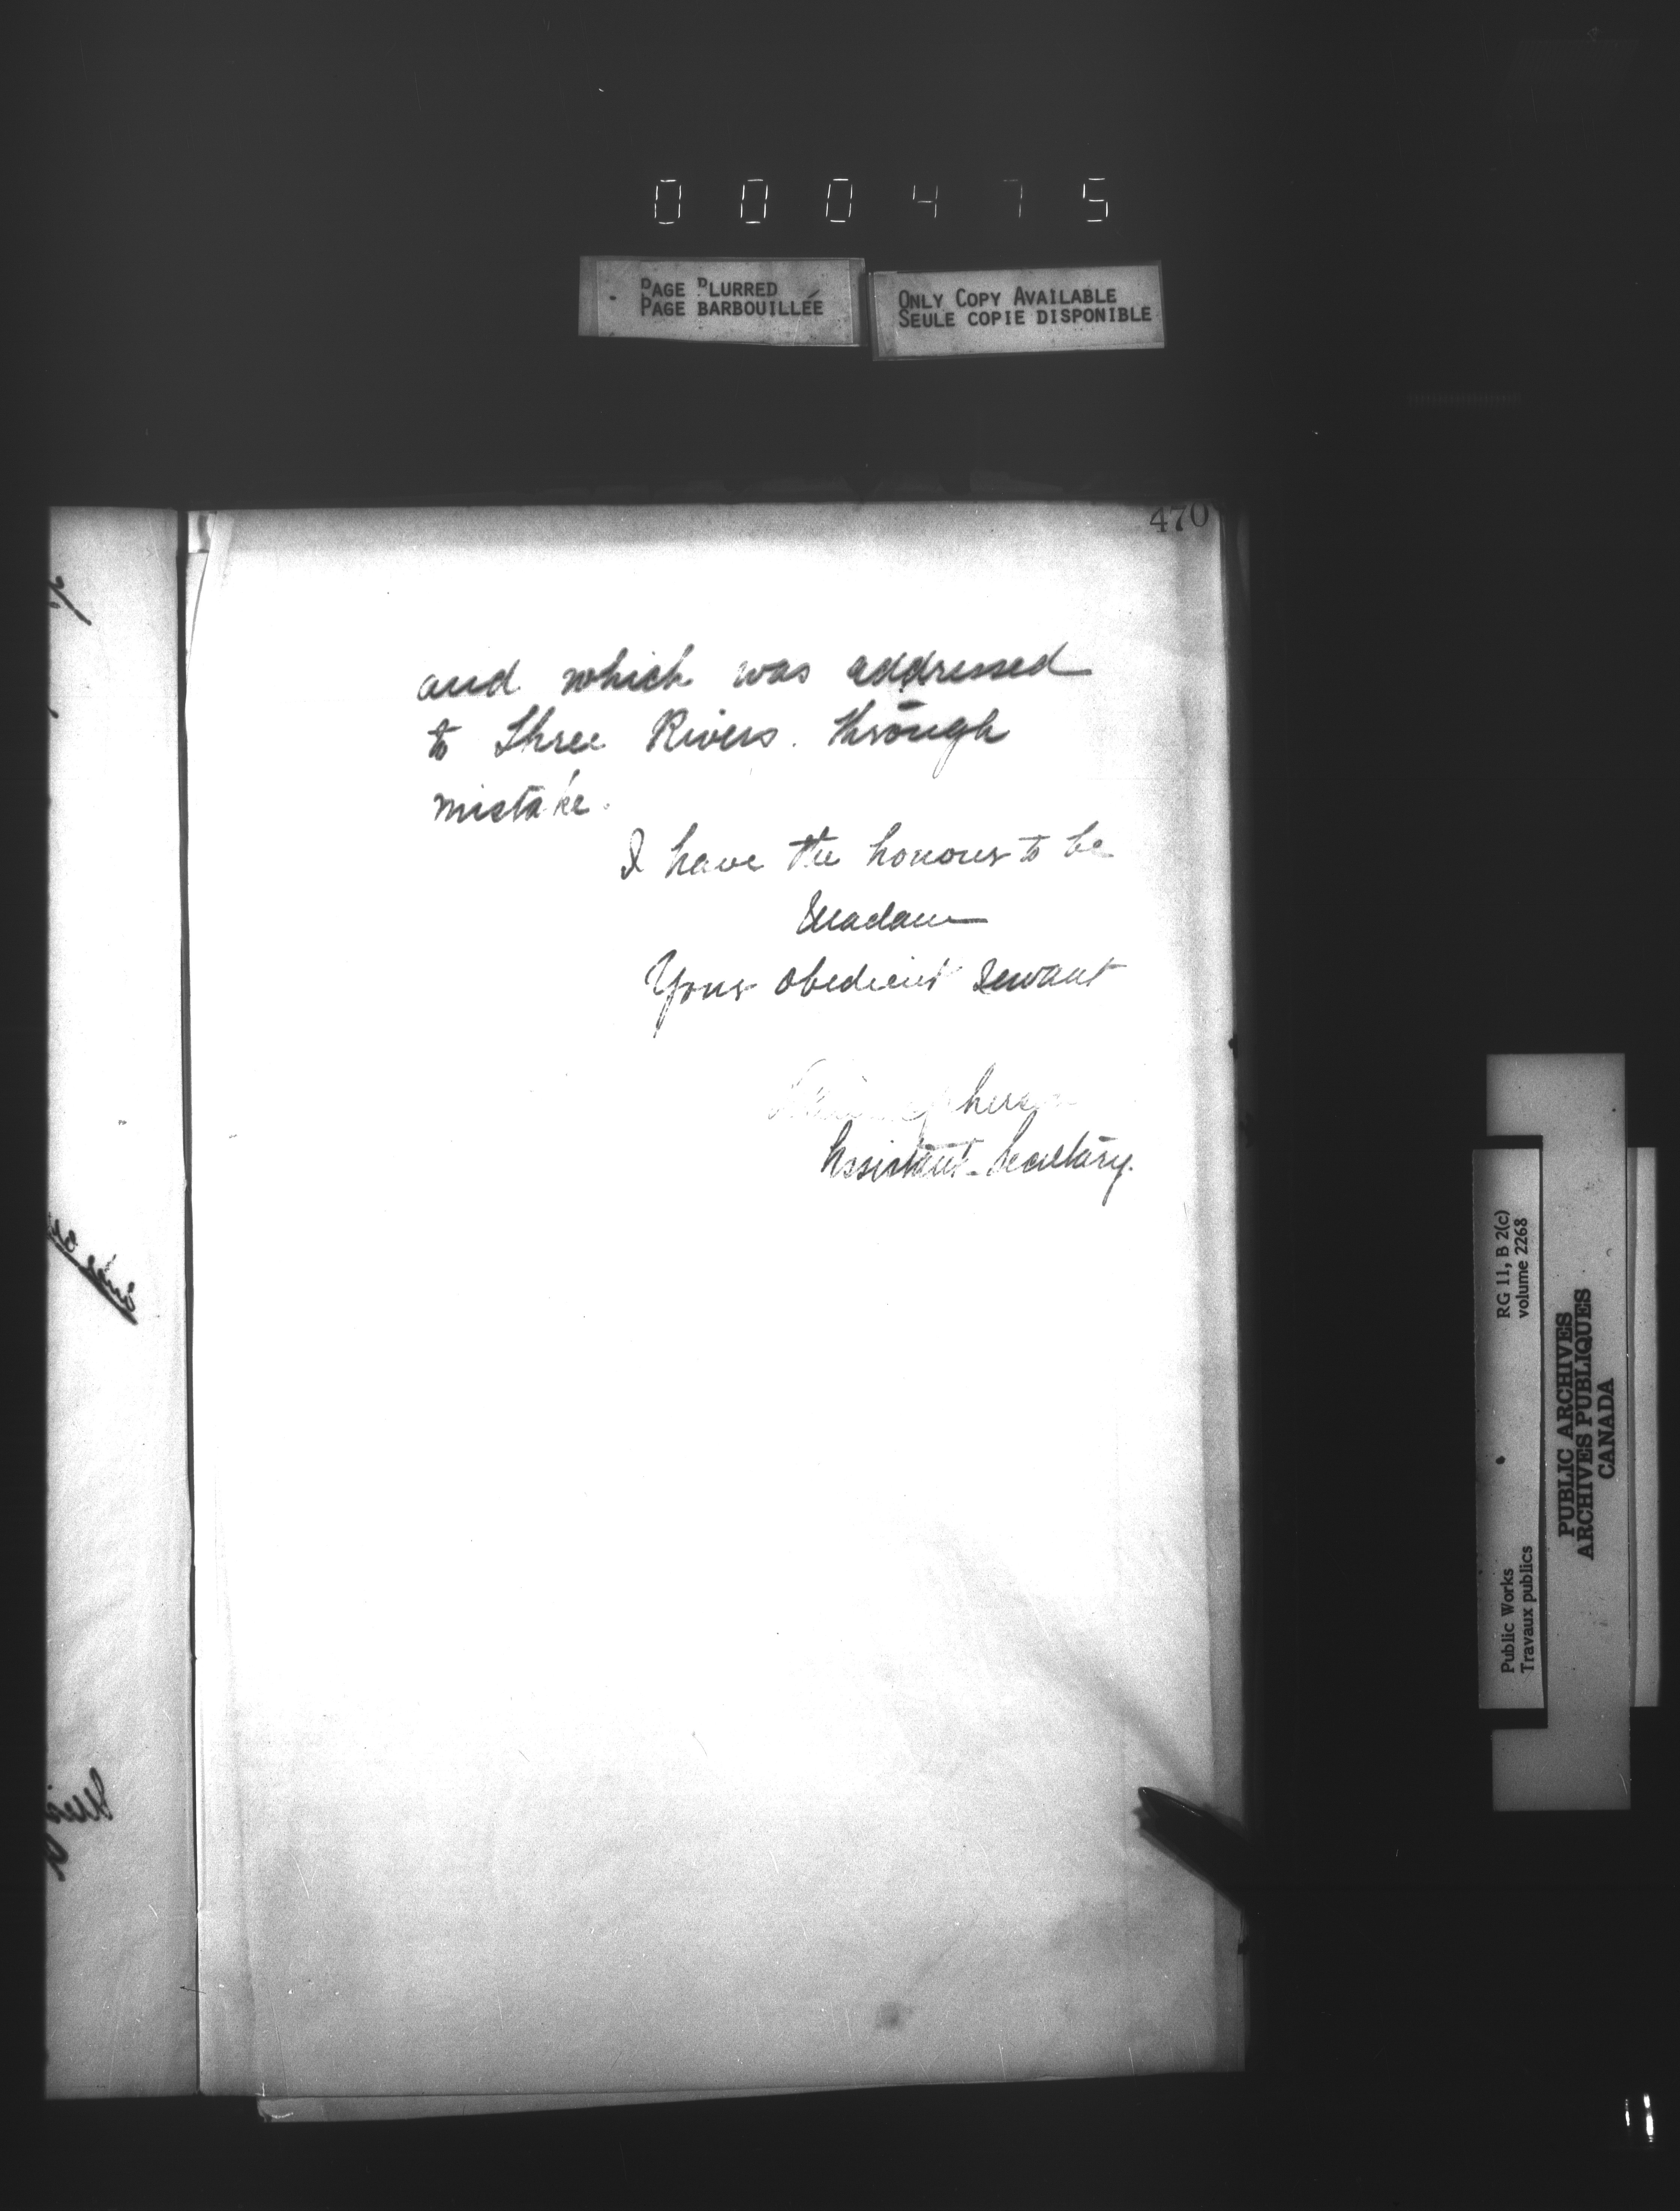 0 0 0 4 7 5
PAGE BLURRED
PAGE BARBOUILLÉE
ONLY COPY AVAILABLE
SEULE COPIE DISPONIBLE
470
and which was addressed
to Three Rivers. through
mistake.
I have the honour to be
Madam
Your obedient Servant
Assistant Secretary.
RG 11, B 2(c)
volume 2268
Public Works
Travaux publics
PUBLIC ARCHIVES
ARCHIVES PUBLIQUES
CANADA